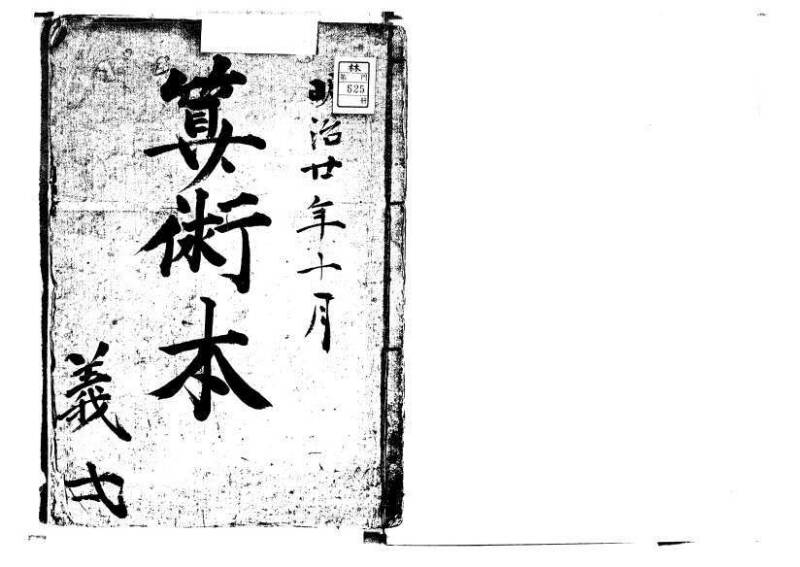 明治廿年十月
算術本
義弌
林
第 門
625
冊